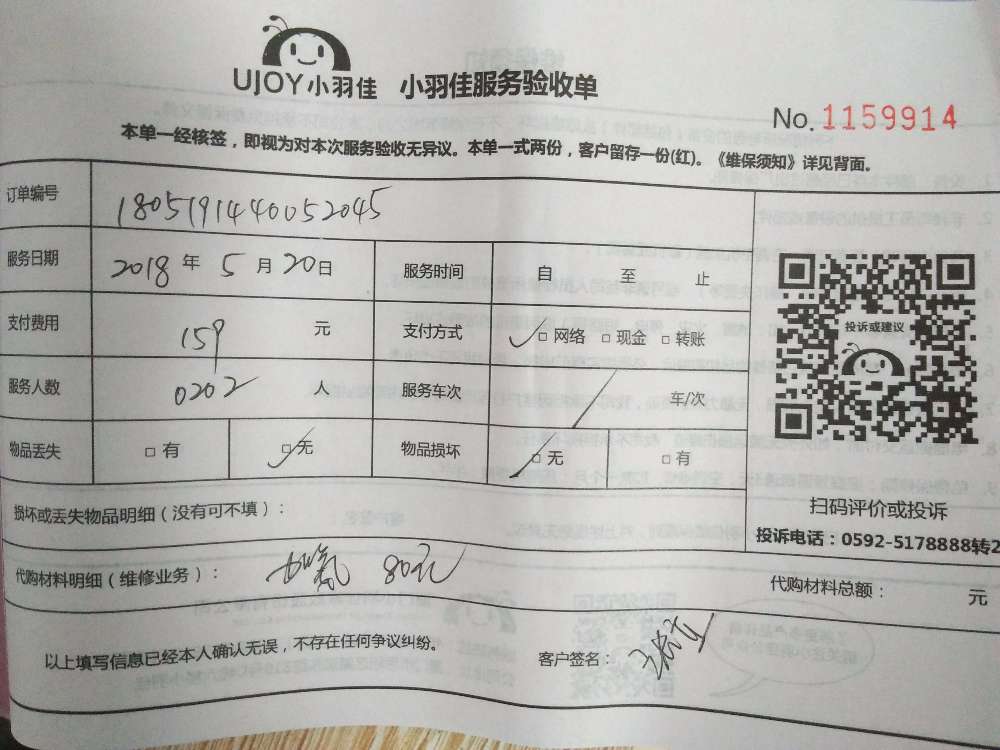 UJOY小羽佳 小羽佳服务验收单
No. 1159914
本单一经核签，即视为对本次服务验收无异议。本单一式两份，客户留存一份(红)。《维保须知》详见背面。
订单编号 1805191440052045
服务日期 2018 年 5 月 20 日 服务时间 自 至 止
支付费用 159 元 支付方式 □ 网络 □ 现金 □ 转账
服务人数 0202 人 服务车次 / 车/次
物品丢失 □ 有 □ 无 物品损坏 □ 无 □ 有
投诉或建议
扫码评价或投诉
投诉电话：0592-5178888转2
损坏或丢失物品明细（没有可不填）：
代购材料明细（维修业务）： 加氟 80元 代购材料总额： 元
以上填写信息已经本人确认无误，不存在任何争议纠纷。 客户签名：